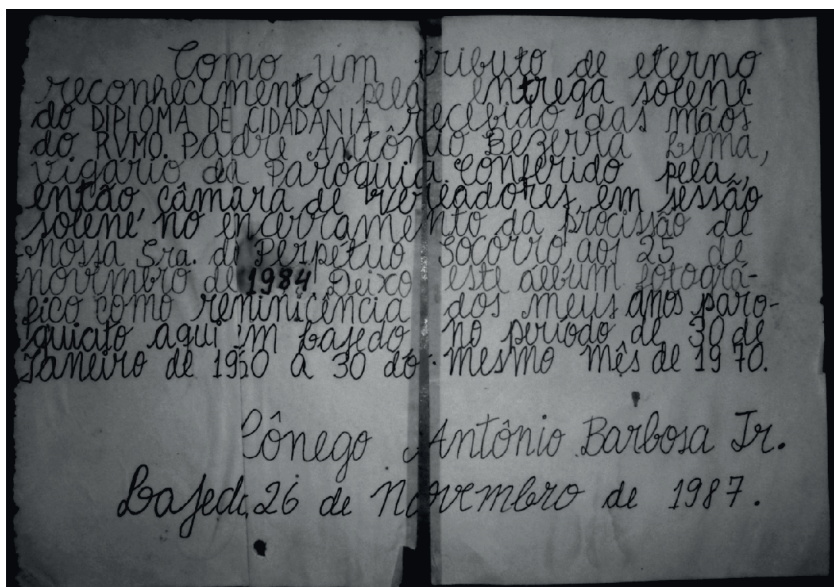 Como um tributo de eterno
reconhecimento pela entrega solene
do DIPLOMA DE CIDADANIA recebido das mãos
do RVMO. Padre Antônio Bezerra Lima,
vigário da Paróquia conferido pela,
então câmara de vereadores em sessão
solene no encerramento da procissão de
nossa Sra. do Perpétuo Socorro aos 25 de
novembro de 1984 Deixo este album fotográ-
fico como reminicência dos meus anos paro-
quiato aqui em Lajedo no período de 30 de
Janeiro de 1950 a 30 do mesmo mês de 1970.
Cônego Antônio Barbosa Jr.
Lajedo, 26 de Novembro de 1987.